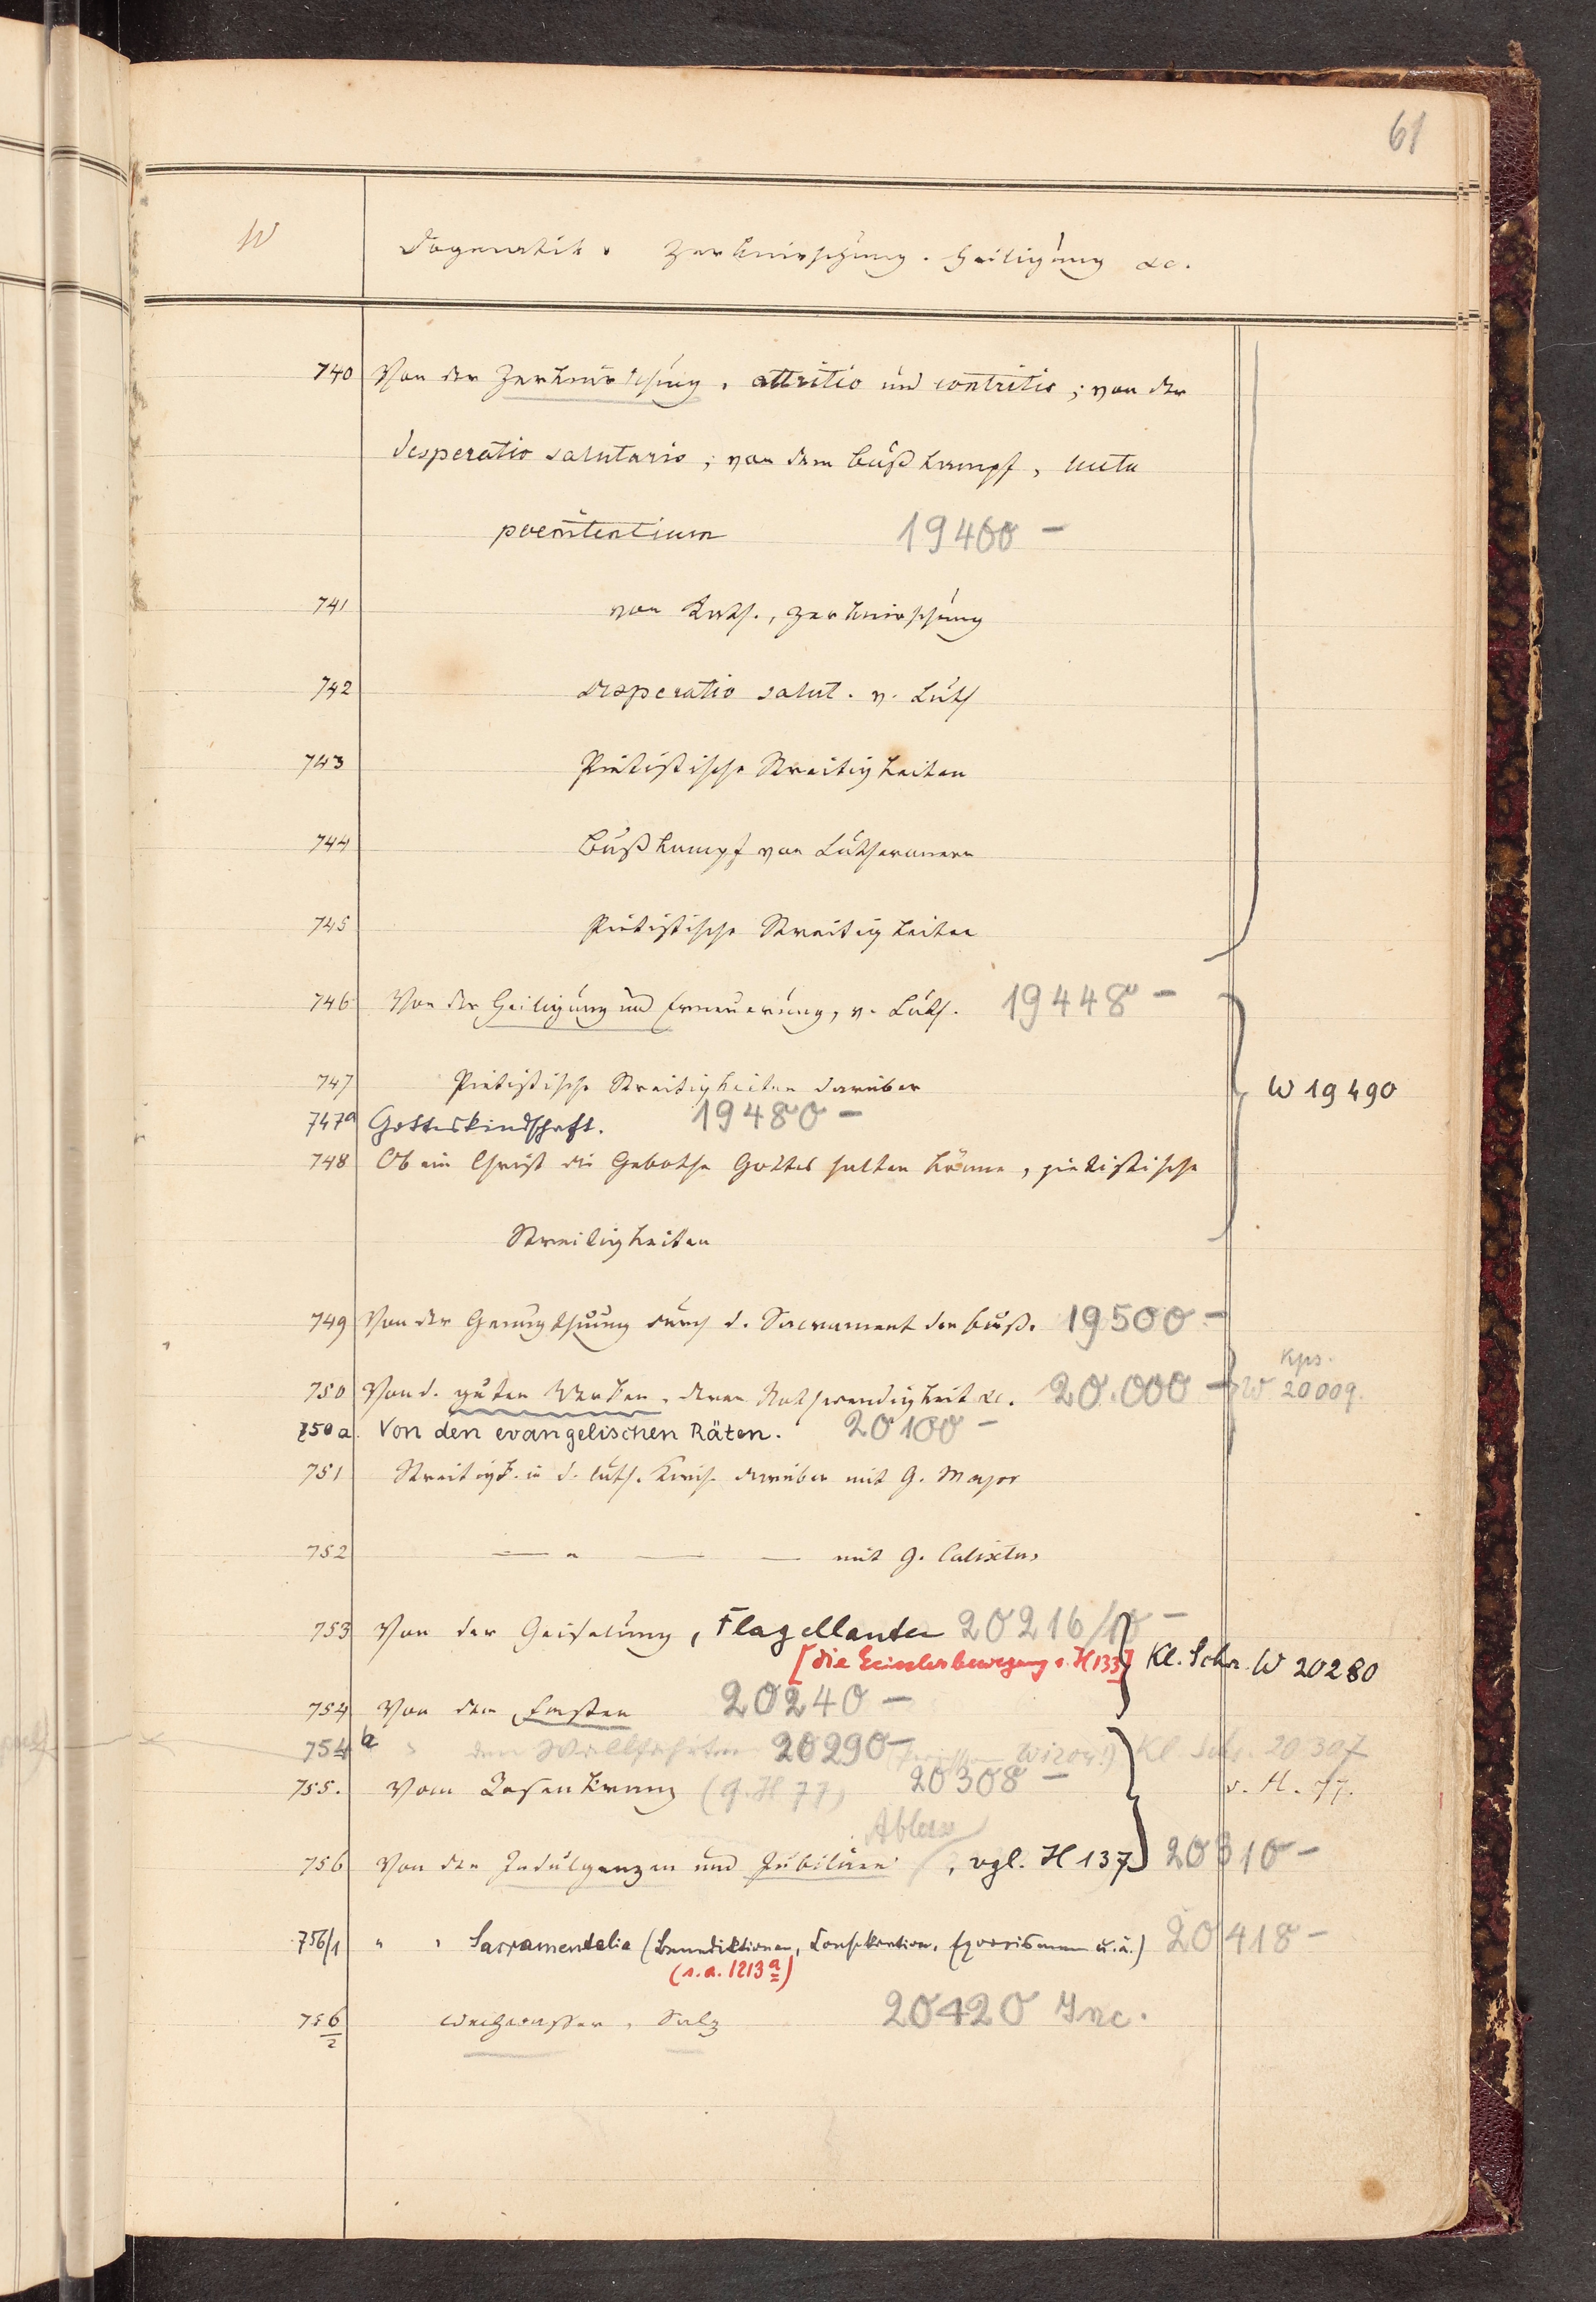 61
W Dogmatik. Zerknirschung. Heiligung &c.
740 Von der Zerknirschung, attritio und contritio; von der
desperatio salutaris; von dem Bußkampf, luctu
poenitentium 19400 –
741 von Luth., Zerknirschung
742 desperatio salut. v. Luth
743 Pietistische Streitigkeiten
744 Bußkampf von Lutheranern
745 Pietistische Streitigkeiten
746 Von der Heiligung und Erneuerung, v. Luth. 19448 –
747 Pietistische Streitigkeiten darüber W 19490
747a Gotteskindschaft. 19480 –
748 Ob ein Christ die Gebothe Gottes halten könne, pietistische
Streitigkeiten
749 Von der Genugthuung durch d. Sacrament der Buß. 19500 –
Kps.
750 Von d. guten Werken, deren Nothwendigkeit &c. 20.000 – W 20009.
750a. Von den evangelischen Räten. 20100 –
751 Streitigk. in d. luth. Kirch. darüber mit G. Major
752 — " — — mit G. Calixtus
753 Von der Geiselung, Flagellanten 20216/10 –
[die Geisslerbewegung s. H 133] Kl. Schr. W 20280
754 Von den Fasten 20240 –
754a " den Wallfahrten 20290 – Kl. Schr. 20307
755. Vom Rosenkranz (cf. H 77) 20308 – v. H. 77.
Ablass
756 Von den Indulgenzen und Jubiläen, vgl. H 137 20310 –
756/1 " " Sacramentalia (Benediktionen, Konsekration, Exorcismen u. ä.) 20418 –
(s. a. 1213a)
756/2 Weihwasser, Salz 20420 Inc.